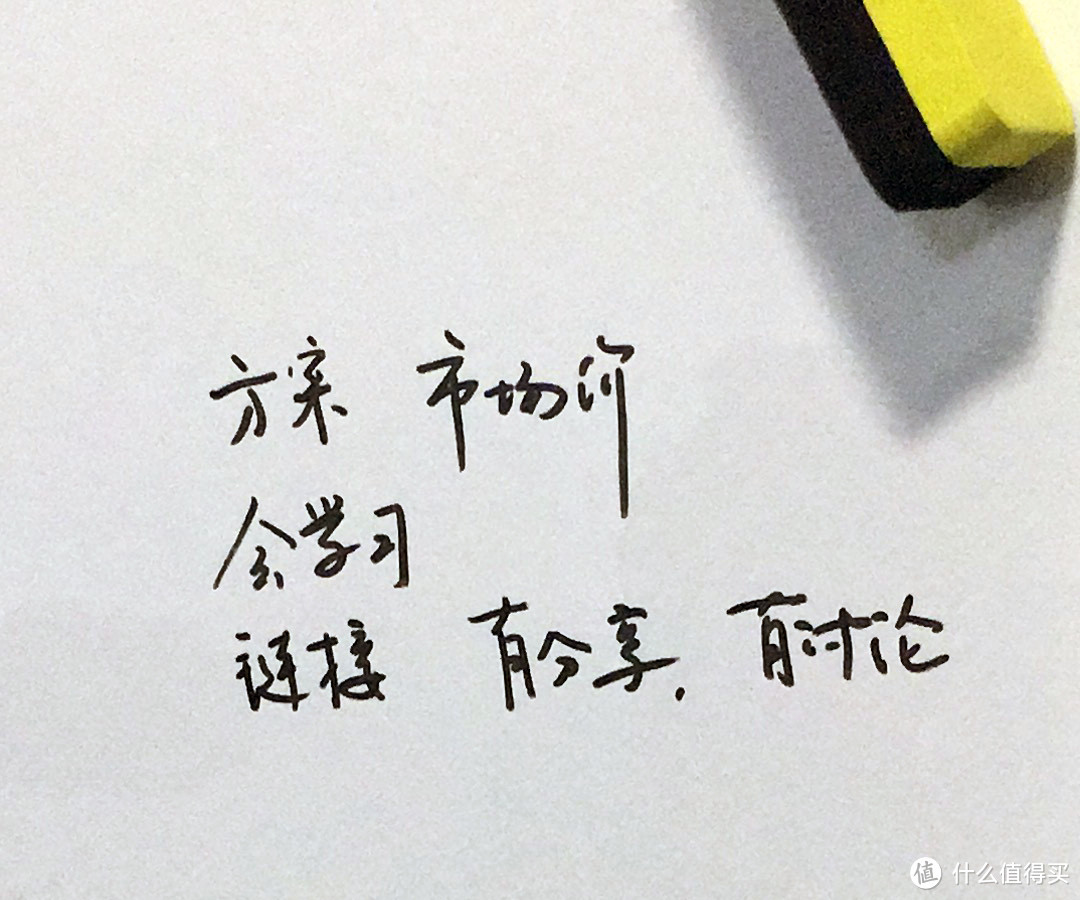 方案 市场价
会学习
链接 有分享,有讨论
值 什么值得买